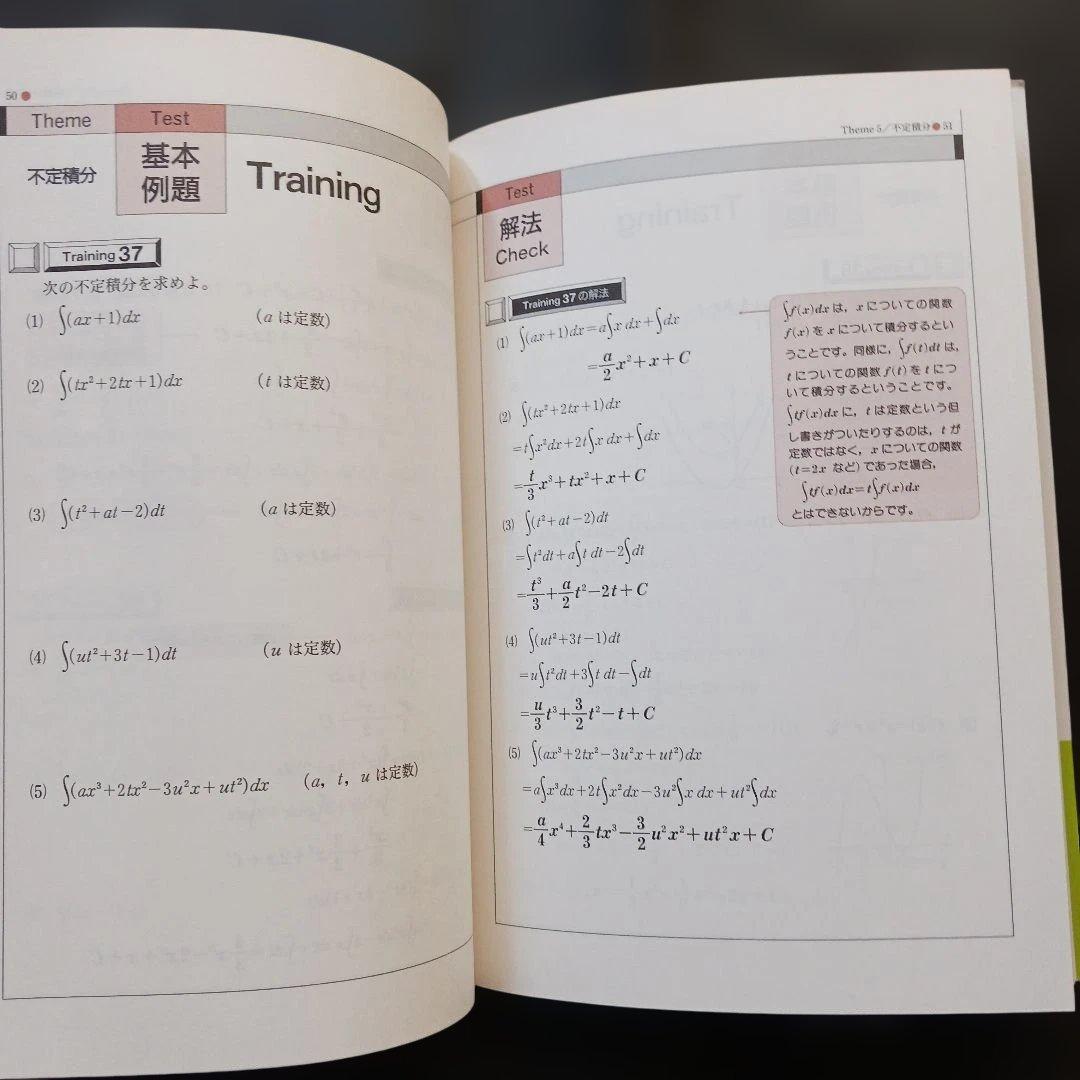 50
Theme
Test
不定積分
基本
例題
Training
Training 37
次の不定積分を求めよ。
(1) ∫(ax+1)dx (a は定数)
(2) ∫(tx²+2tx+1)dx (t は定数)
(3) ∫(t²+at−2)dt (a は定数)
(4) ∫(ut²+3t−1)dt (u は定数)
(5) ∫(ax³+2tx²−3u²x+ut²)dx (a, t, u は定数)
Theme 5／不定積分●51
Test
解法
Check
Training 37 の解法
(1) ∫(ax+1)dx=a∫x dx+∫dx
=a/2 x²+x+C
(2) ∫(tx²+2tx+1)dx
=t∫x²dx+2t∫x dx+∫dx
=t/3 x³+tx²+x+C
(3) ∫(t²+at−2)dt
=∫t²dt+a∫t dt−2∫dt
=t³/3+a/2 t²−2t+C
(4) ∫(ut²+3t−1)dt
=u∫t²dt+3∫t dt−∫dt
=u/3 t³+3/2 t²−t+C
(5) ∫(ax³+2tx²−3u²x+ut²)dx
=a∫x³dx+2t∫x²dx−3u²∫x dx+ut²∫dx
=a/4 x⁴+2/3 tx³−3/2 u²x²+ut²x+C
∫f(x)dx は，x についての関数
f(x) を x について積分するとい
うことです。同様に，∫f(t)dt は，
t についての関数 f(t) を t につ
いて積分するということです。
∫tf(x)dx に，t は定数という但
し書きがついたりするのは，t が
定数ではなく，x についての関数
(t=2x など)であった場合，
∫tf(x)dx=t∫f(x)dx
とはできないからです。